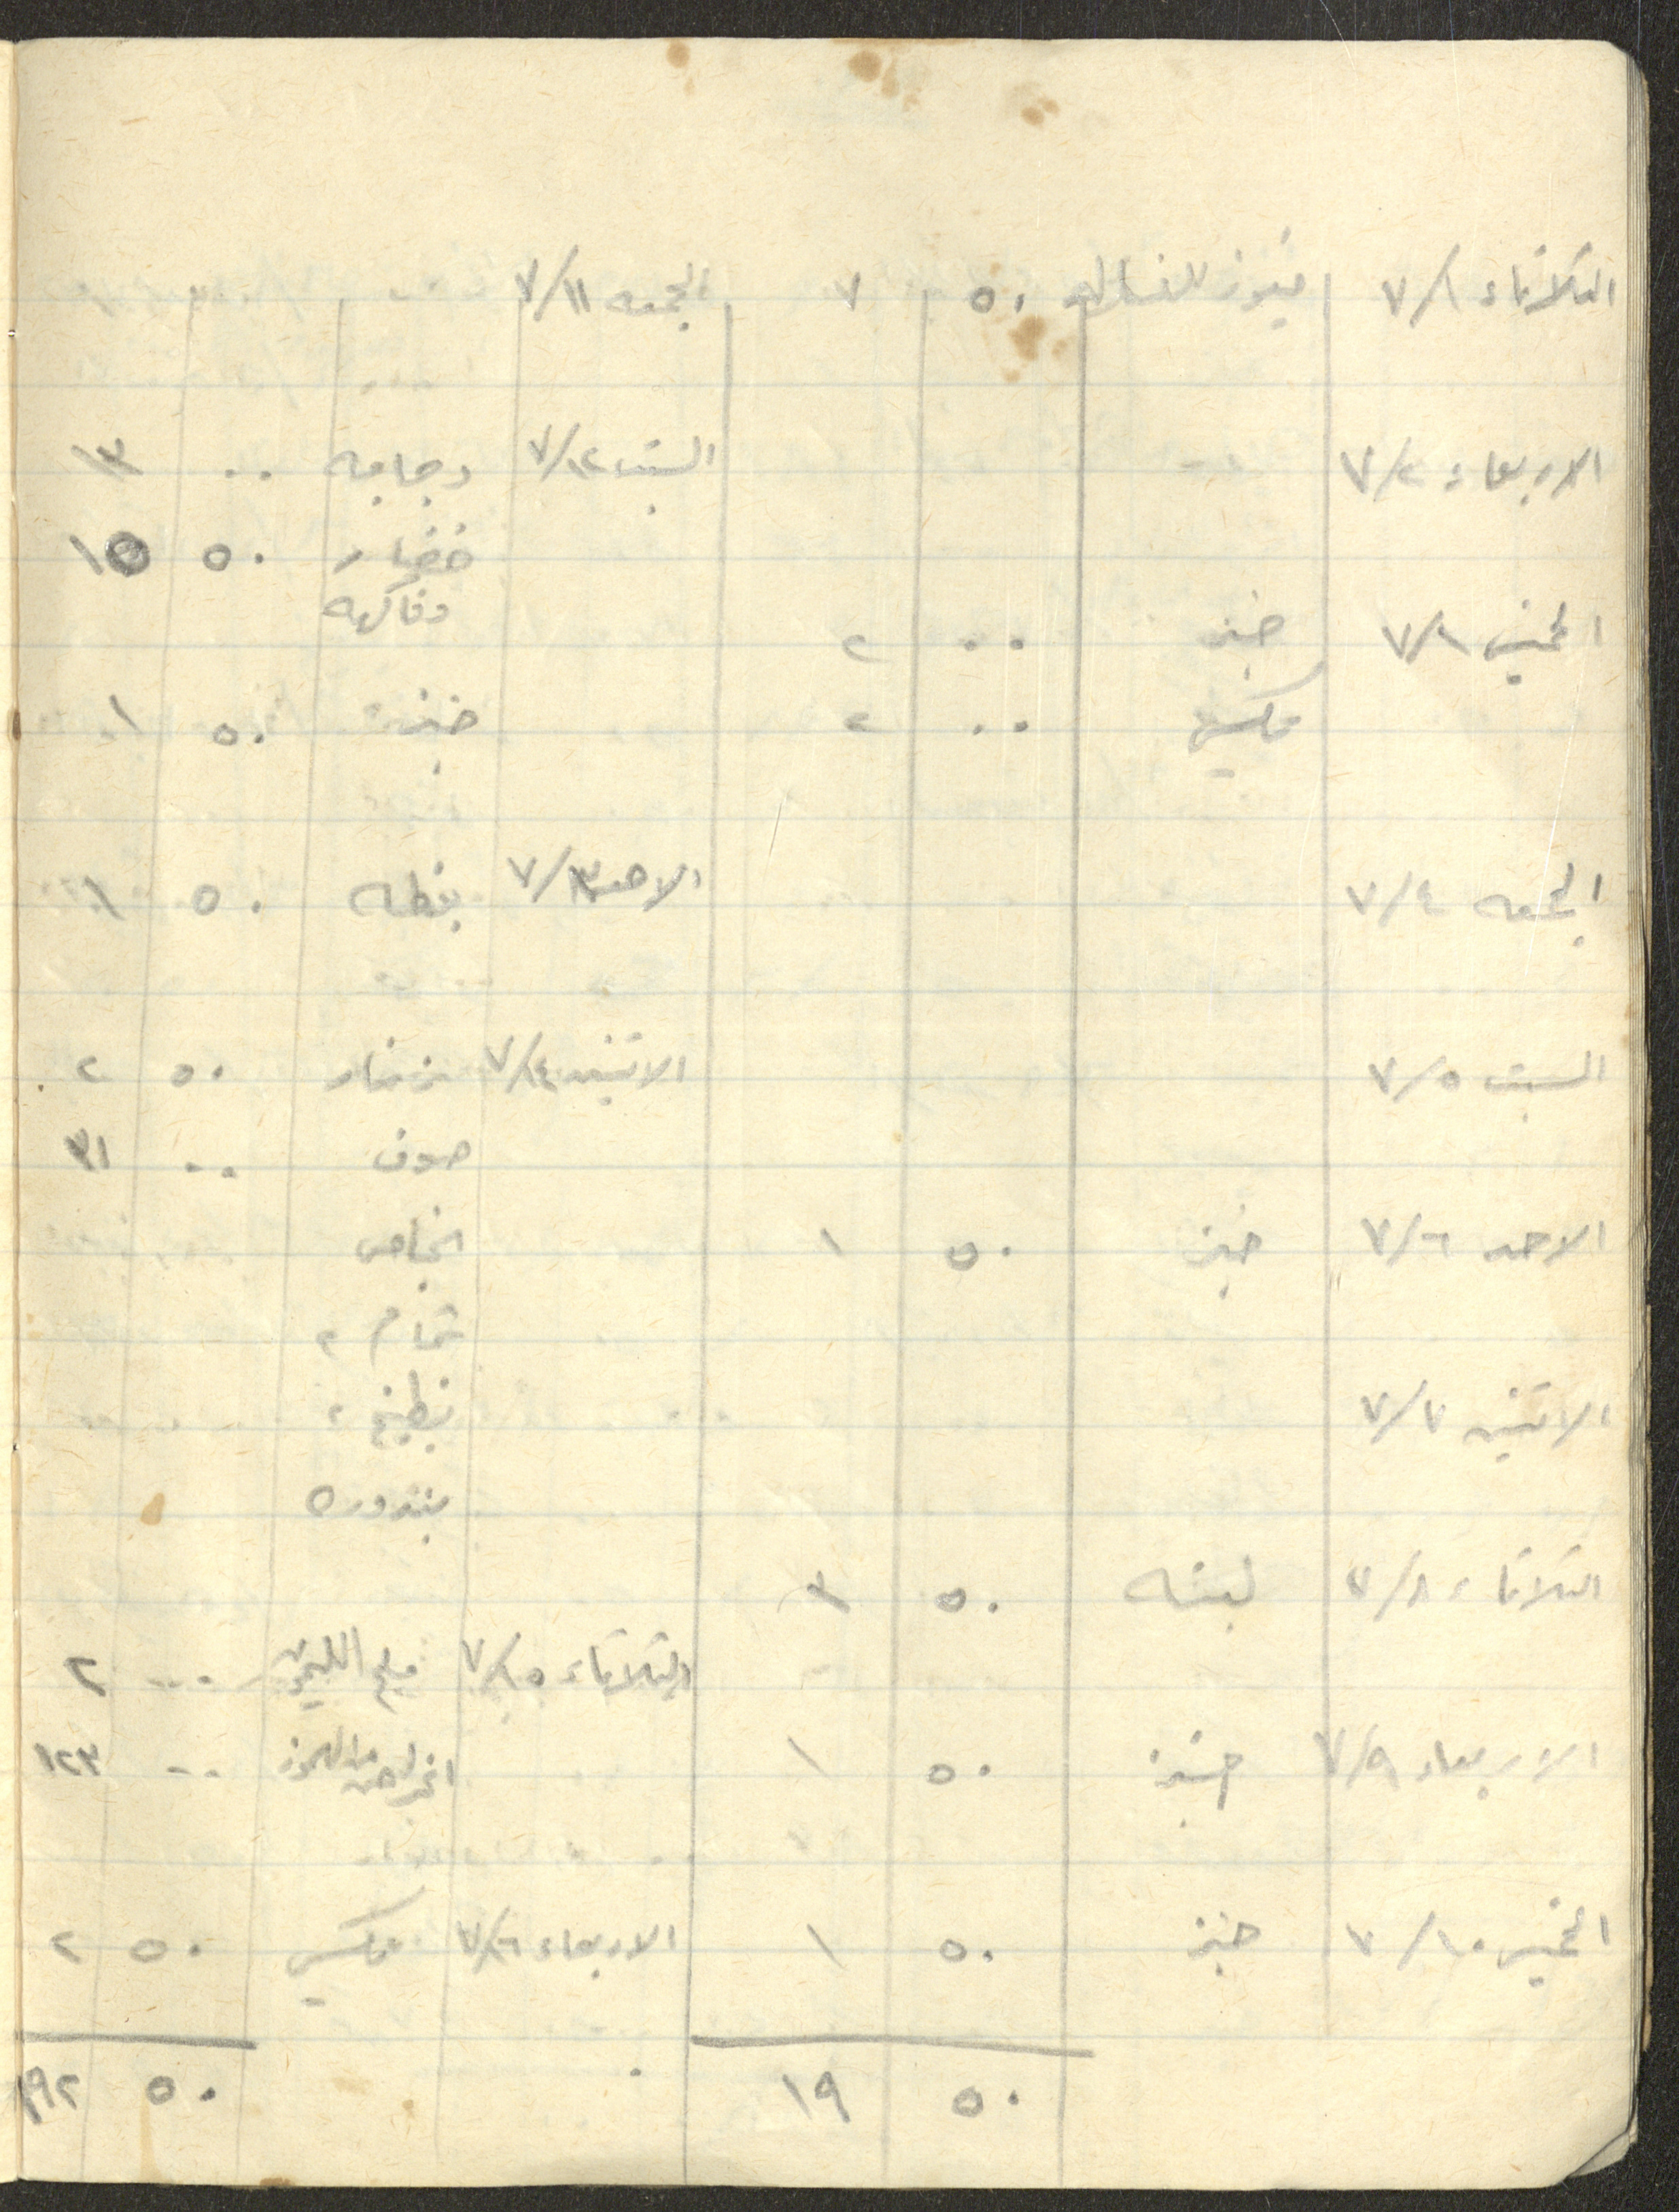 الثلاثاء ٧/١ فيوز للغساله ٥٠ ٧
الاربعاء ٧/٢
الخميس ٧/٣ خبز ٠٠ ٢
مكسي ٠٠ ٢
الجمعه ٧/٤
السبت ٧/٥
الاحد ٧/٦ خبز ٥٠ ١
الاثنين ٧/٧
الثلاثاء ٧/٨ لبنه ٥٠ ٣
الاربعاء ٧/٩ خبز ٥٠ ١
الخميس ٧/١٠ خبز ٥٠ ١
٥٠ ١٩
الجمعه ٧/١١
السبت ٧/١٢ دجاجه ٠٠ ١٣
خضار ٥٠ ١٥
وفاكهه
خبز ٥٠ ١
الاحد ٧/١٣ بوظه ٥٠ ١
الاثنين ٧/١٤ ٥٠ ٢
صوف ٠٠ ٣١
انجاص
شمام ٢
بطيخ ٢
بندوره
الثلاثاء ٧/١٥ ملح الليمون ٠٠ ٢
٠٠ ١٢٣
الاربعاء ٧/١٦ مكسي ٥٠ ٢
٥٠ ١٩٢